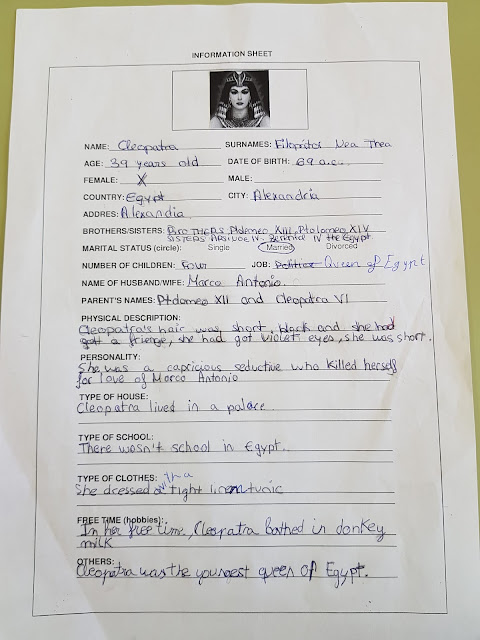 INFORMATION SHEET
NAME: Cleopatra SURNAMES: Filopátor Nea Thea
AGE: 39 years old DATE OF BIRTH: 69 a.c.
FEMALE: X MALE:
COUNTRY: Egypt CITY: Alexandria
ADDRES: Alexandia
BROTHERS/SISTERS: BROTHERS, Ptolomeo XIII, Ptolomeo XIV
SISTERS ARSINOE IV, Berenice IV the Egypt
MARITAL STATUS (circle): Single Married Divorced
NUMBER OF CHILDREN: Four JOB: Politics Queen of Egypt
NAME OF HUSBAND/WIFE: Marco Antonio
PARENT'S NAMES: Ptolomeo XII and Cleopatra VI
PHYSICAL DESCRIPTION:
Cleopatra's hair was short, black and she had
got a frienge, she had got violet eyes, she was short.
PERSONALITY:
She was a capricious seductive who killed herself
for love of Marco Antonio
TYPE OF HOUSE:
Cleopatra lived in a palace.
TYPE OF SCHOOL:
There wasn't school in Egypt.
TYPE OF CLOTHES:
She dressed with a tight linen tunic
FREE TIME (hobbies):
In her free time, Cleopatra bathed in donkey
milk
OTHERS:
Cleopatra was the youngest queen of Egypt.